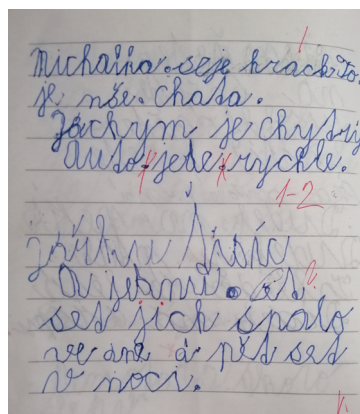 Michalka. seje hrách To
je nše. chata.
Jáchym je chytrý
auto jede rychle.
1-2
tisíc
a jednu.
set jich spalo
ve dne a pět set
v noci.